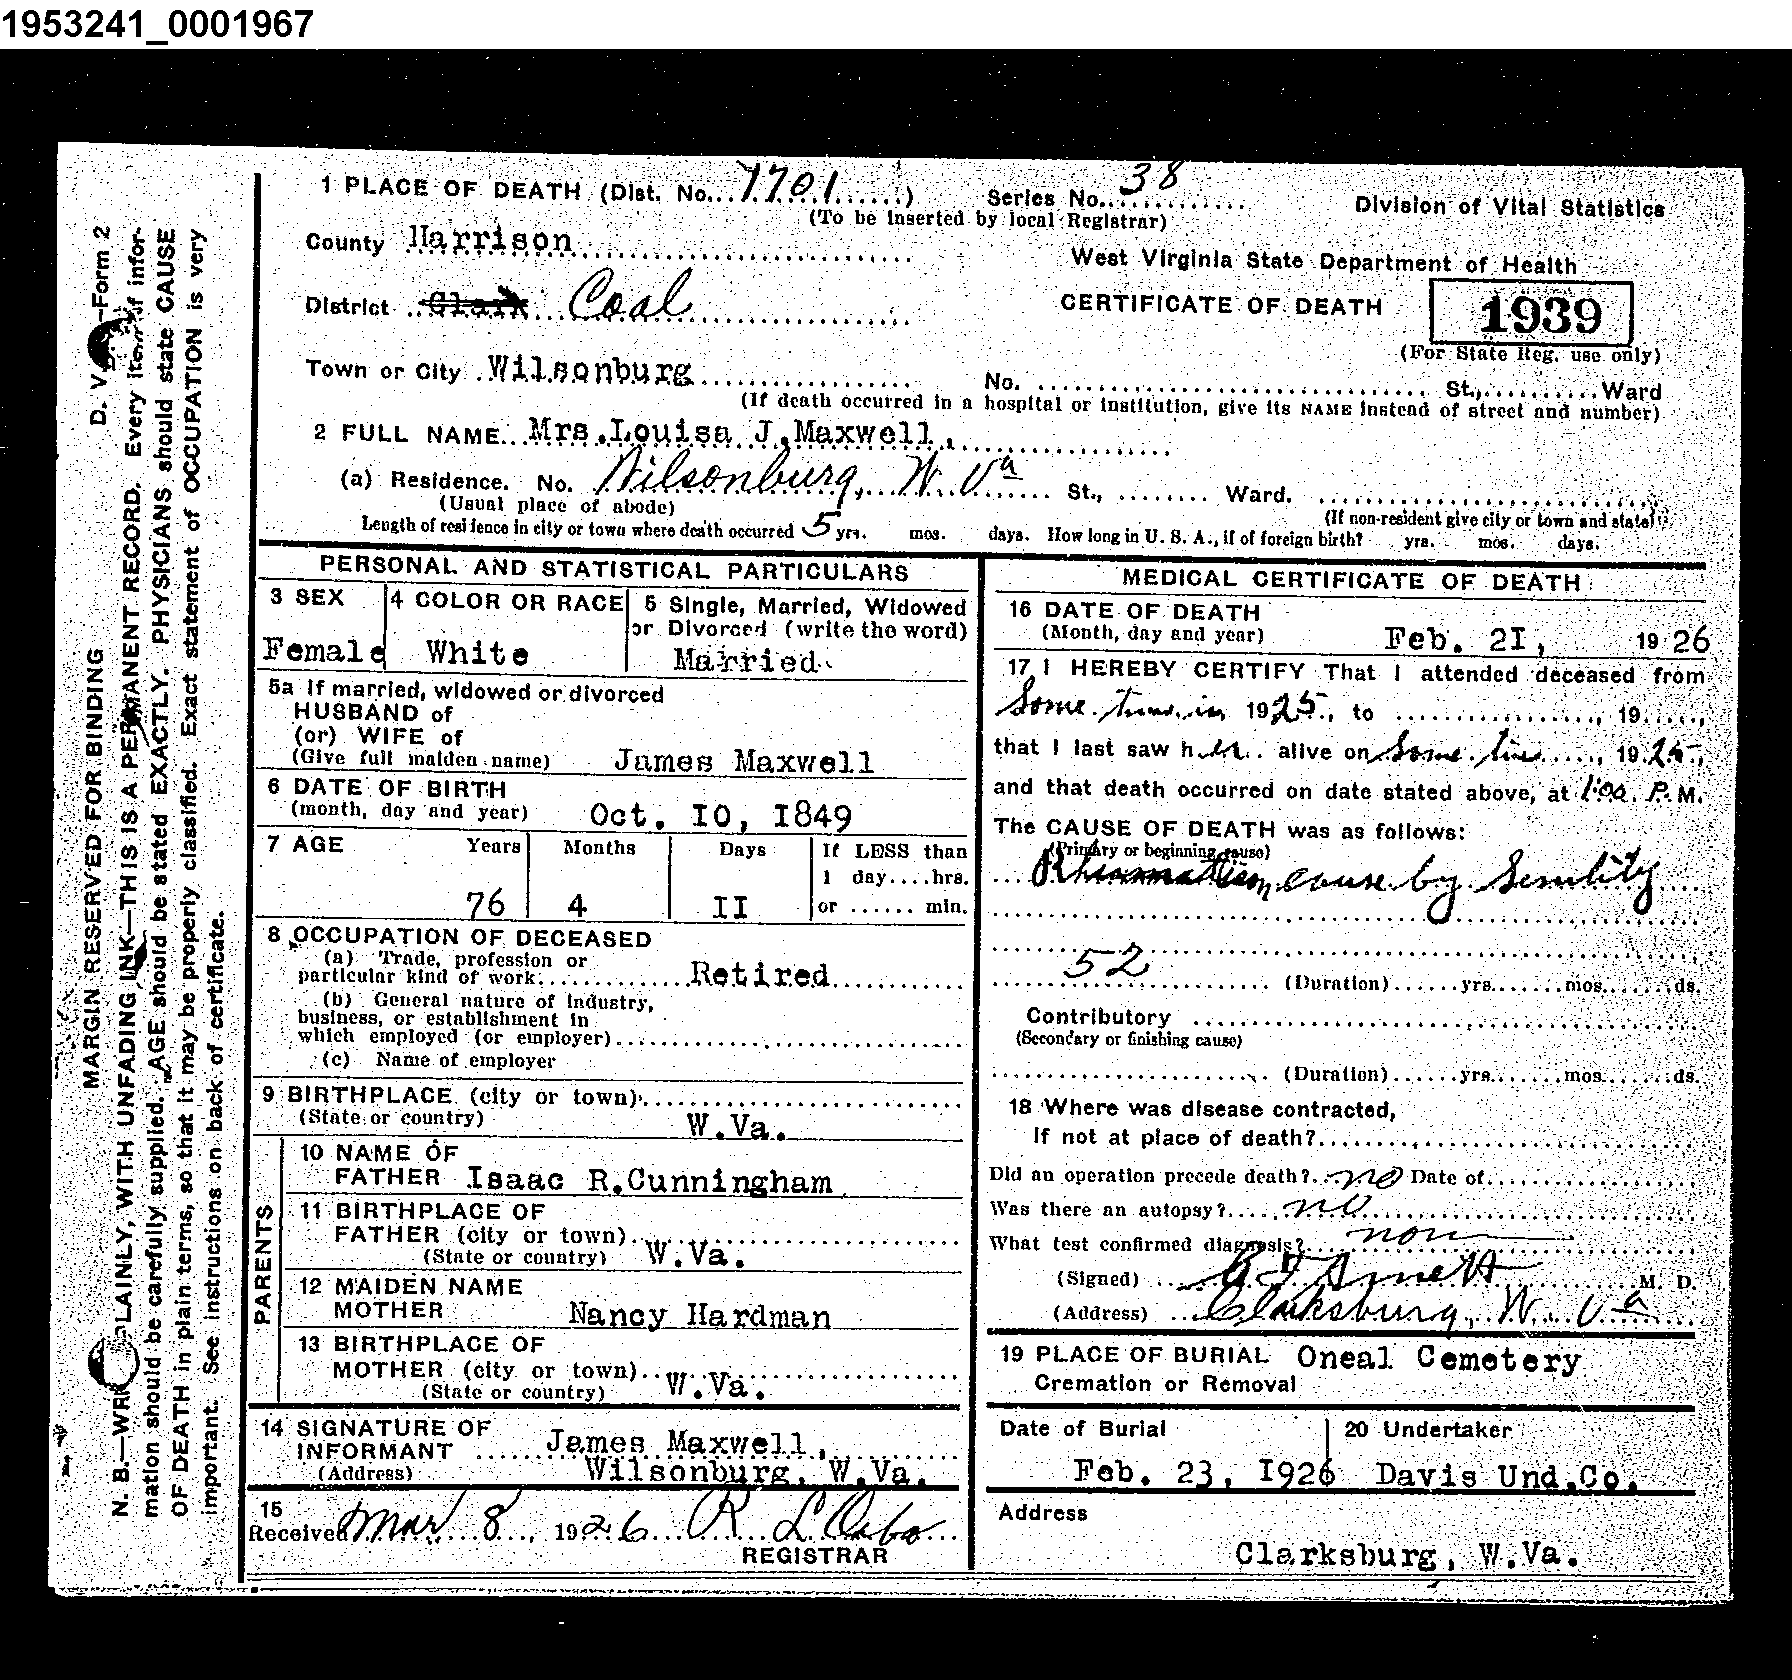 1953241_0001967
1 PLACE OF DEATH (Dist. No. 1701 )
Series No. 38
(To be inserted by local Registrar)
Division of Vital Statistics
County Harrison
West Virginia State Department of Health
District Clark Coal
CERTIFICATE OF DEATH
1939
(For State Reg. use only)
Town or City Wilsonburg
No. St., Ward
(If death occurred in a hospital or institution, give its NAME instead of street and number)
2 FULL NAME Mrs. Louisa J. Maxwell,
(a) Residence. No. Wilsonburg, W. Va St., Ward.
(Usual place of abode)
(If non-resident give city or town and state)
Length of residence in city or town where death occurred 5 yrs. mos. days. How long in U. S. A., if of foreign birth? yrs. mos. days.
PERSONAL AND STATISTICAL PARTICULARS
3 SEX
Female
4 COLOR OR RACE
White
5 Single, Married, Widowed
or Divorced (write the word)
Married
5a If married, widowed or divorced
HUSBAND of
(or) WIFE of
(Give full maiden name) James Maxwell
6 DATE OF BIRTH
(month, day and year) Oct. IO, I849
7 AGE Years Months Days
76 4 II
If LESS than
1 day....hrs.
or ...... min.
8 OCCUPATION OF DECEASED
(a) Trade, profession or
particular kind of work Retired
(b) General nature of industry,
business, or establishment in
which employed (or employer)
(c) Name of employer
9 BIRTHPLACE (city or town)
(State or country) W.Va.
PARENTS
10 NAME OF
FATHER Isaac R.Cunningham
11 BIRTHPLACE OF
FATHER (city or town)
(State or country) W.Va.
12 MAIDEN NAME
MOTHER Nancy Hardman
13 BIRTHPLACE OF
MOTHER (city or town)
(State or country) W.Va.
14 SIGNATURE OF
INFORMANT James Maxwell,
(Address) Wilsonburg, W.Va.
15
Received Mar 8, 1926 R L Osbo
REGISTRAR
MEDICAL CERTIFICATE OF DEATH
16 DATE OF DEATH
(Month, day and year) Feb. 2I, 19 26
17 I HEREBY CERTIFY That I attended deceased from
Some time in 1925, to , 19 ,
that I last saw her alive on Some time , 1925,
and that death occurred on date stated above, at 1:00 P.M.
The CAUSE OF DEATH was as follows:
(Primary or beginning cause)
Rheumatism cause by Senility
52
(Duration) yrs. mos. ds.
Contributory
(Secondary or finishing cause)
(Duration) yrs. mos. ds.
18 Where was disease contracted,
If not at place of death?
Did an operation precede death? no Date of
Was there an autopsy? no
What test confirmed diagnosis? non
(Signed) Arnett M. D.
(Address) Clarksburg, W. Va
19 PLACE OF BURIAL Oneal Cemetery
Cremation or Removal
Date of Burial
Feb. 23, I926
20 Undertaker
Davis Und.Co.
Address
Clarksburg, W.Va.
D. V. Form 2
MARGIN RESERVED FOR BINDING
N. B.—WRITE PLAINLY, WITH UNFADING INK—THIS IS A PERMANENT RECORD. Every item of infor-
mation should be carefully supplied. AGE should be stated EXACTLY. PHYSICIANS should state CAUSE
OF DEATH in plain terms, so that it may be properly classified. Exact statement of OCCUPATION is very
important. See instructions on back of certificate.